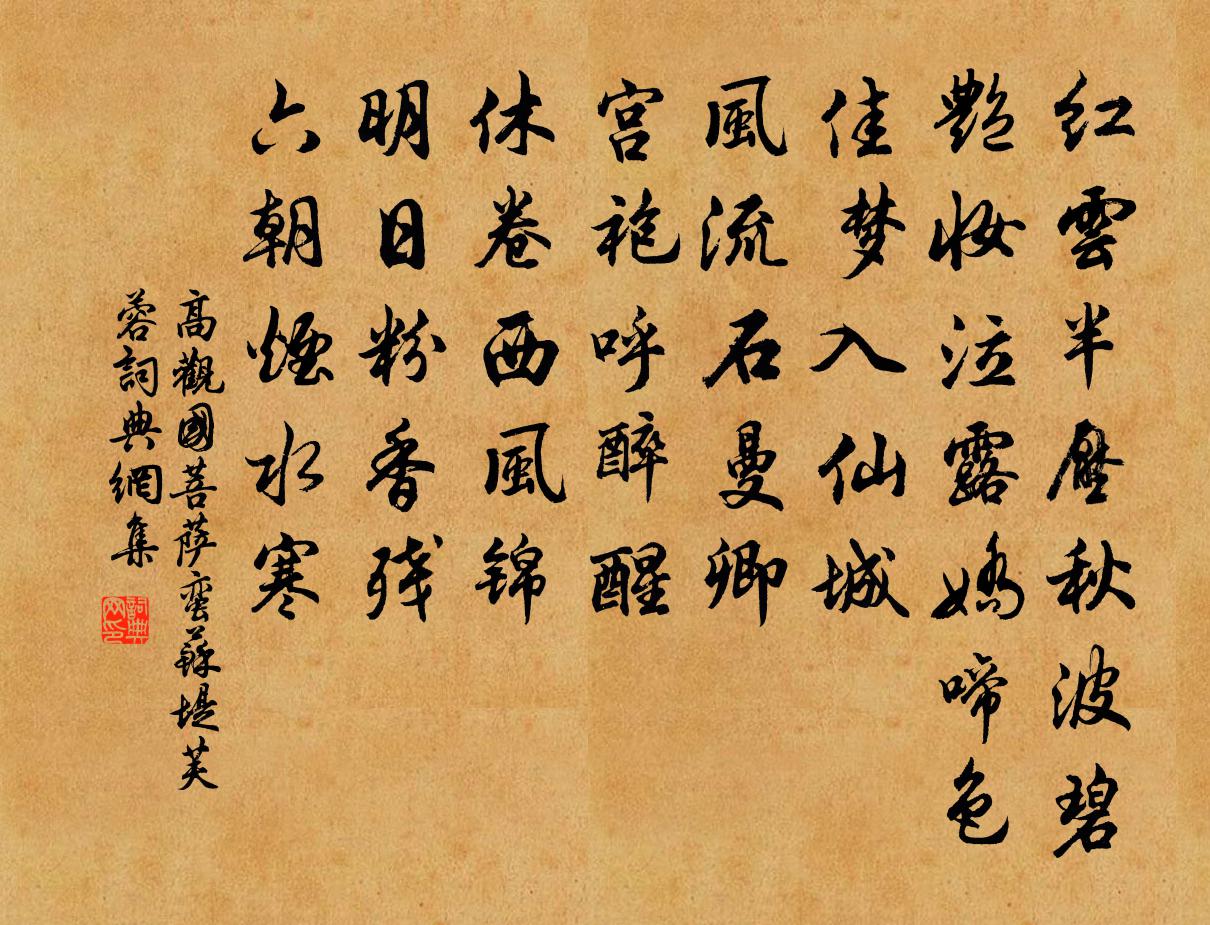 红雲半壓秋波碧
艷妝泣露嬌啼色
佳梦入仙城
風流石曼卿
宫袍呼醉醒
休卷西風锦
明日粉香残
六朝煙水寒
高觀國菩萨蛮蘇堤芙
蓉詞典網集
詞典网印